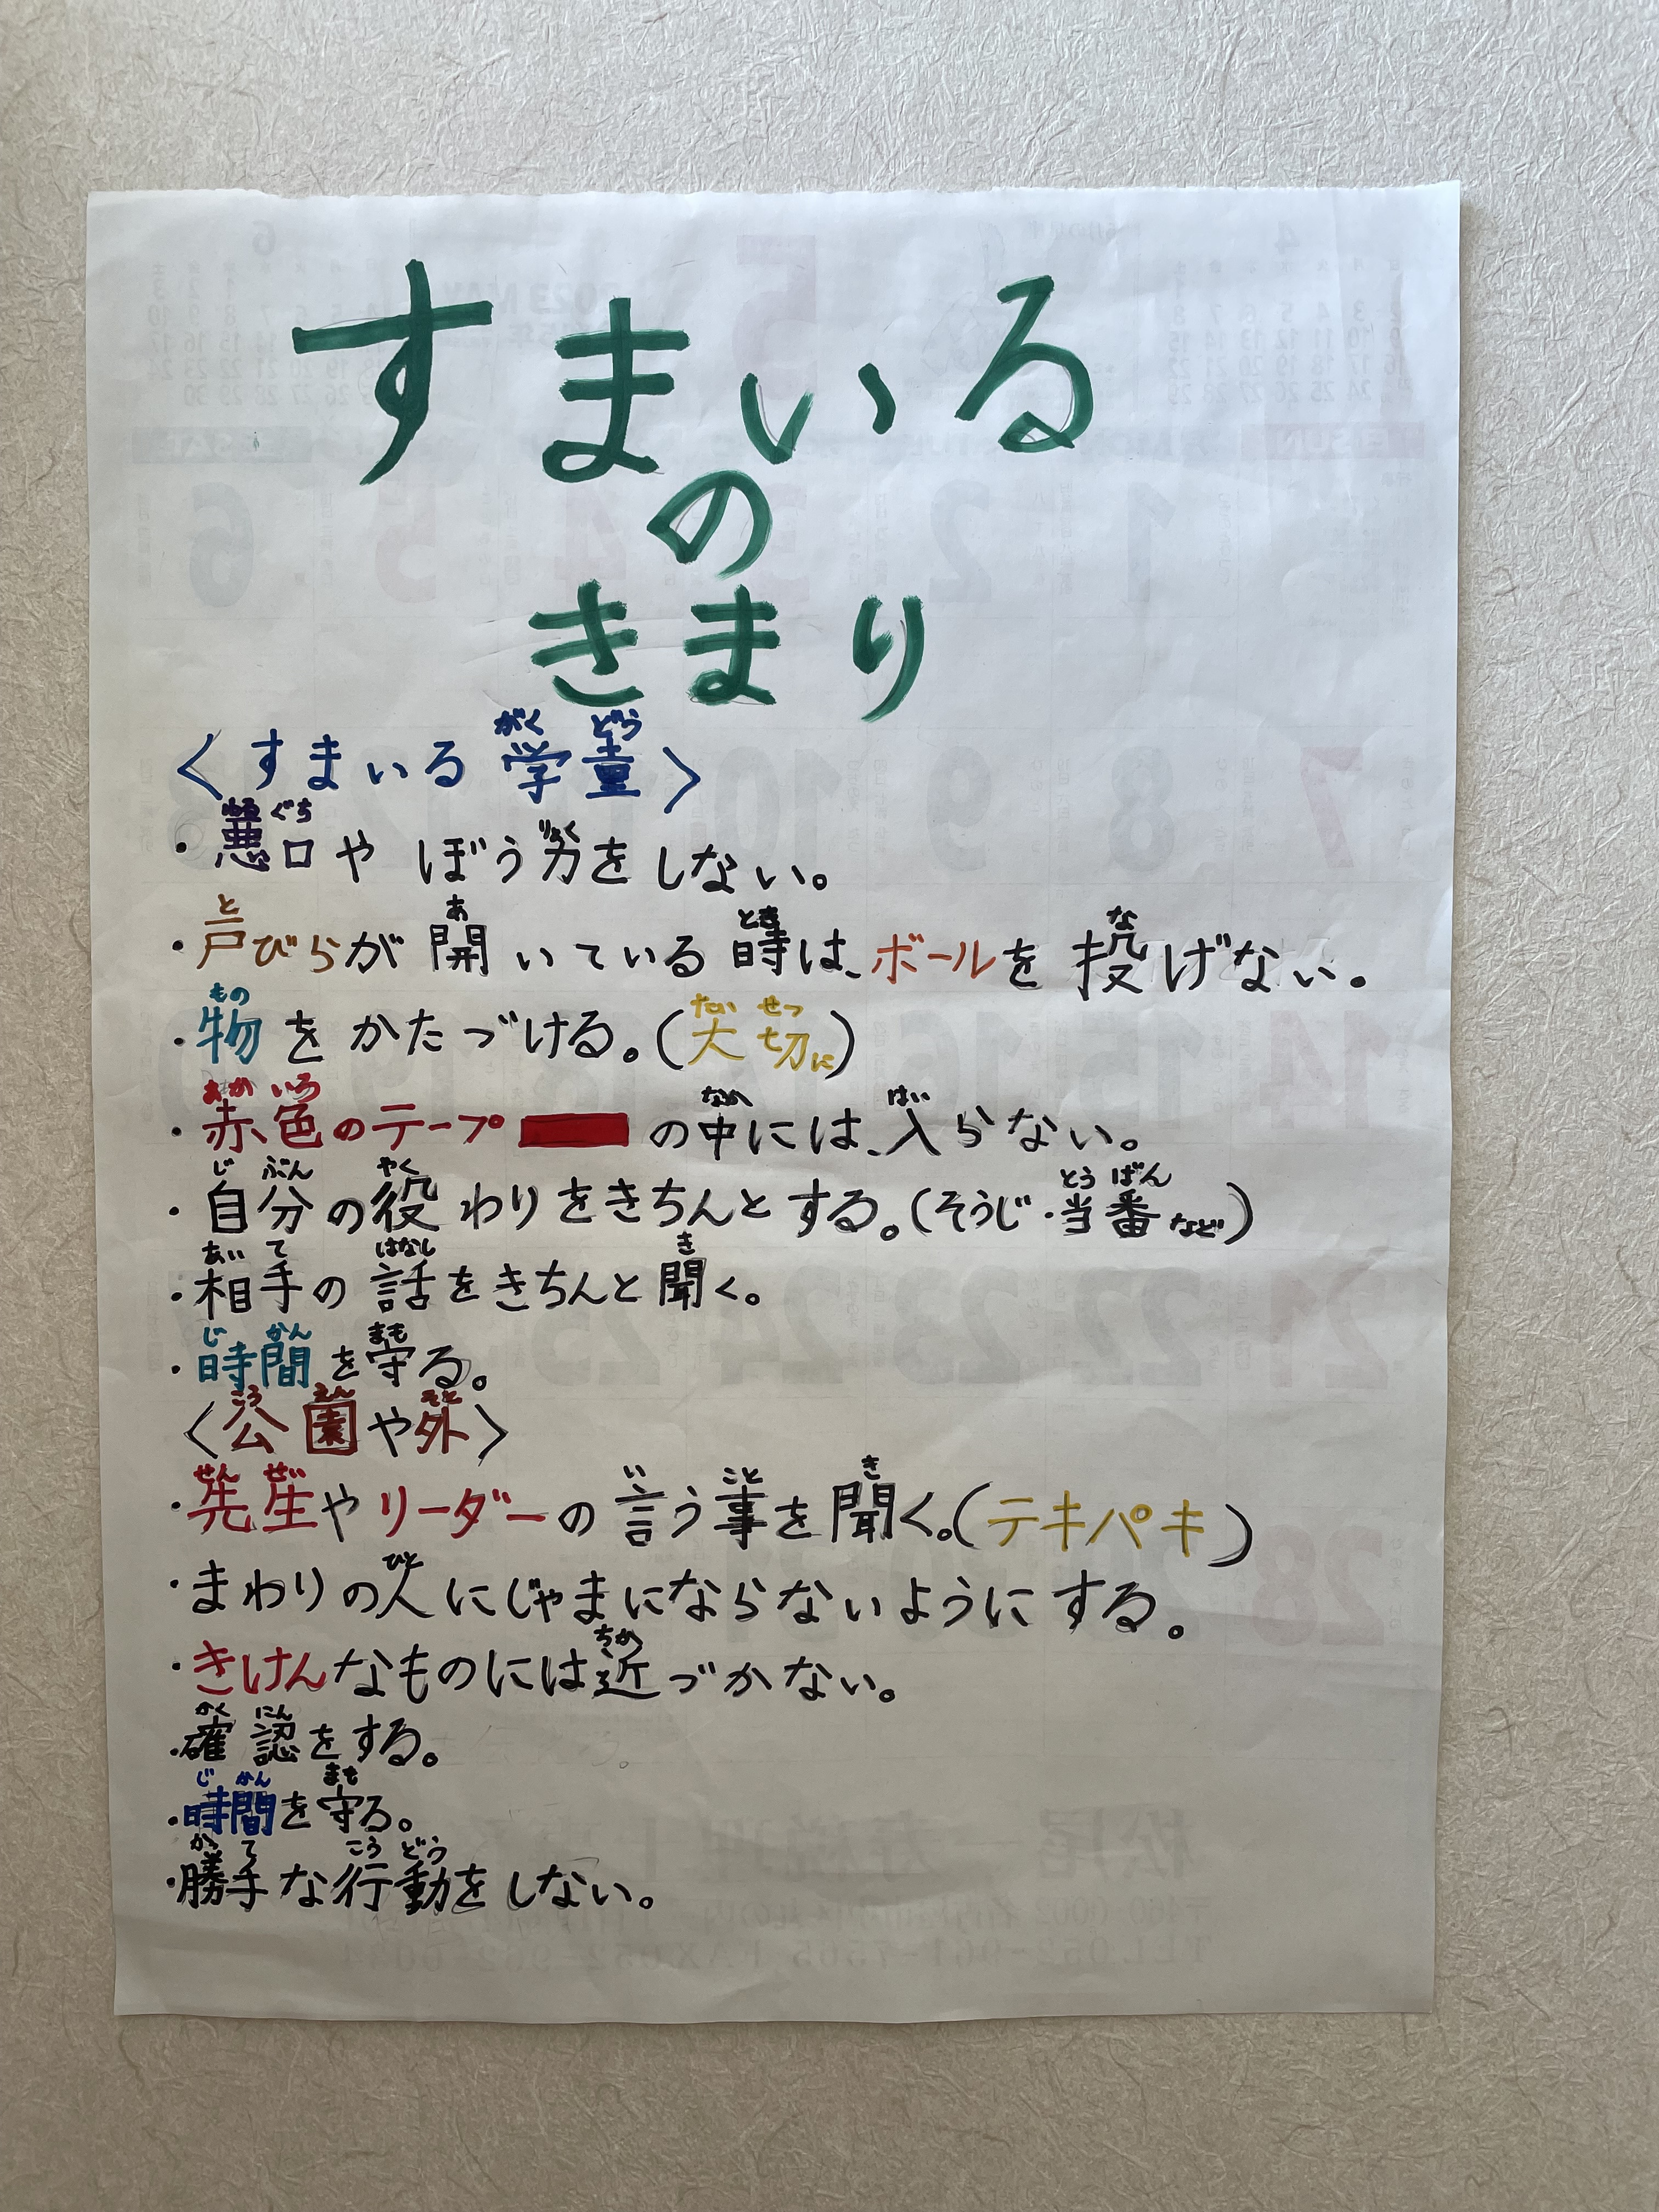 すまいる
の
きまり
〈すまいる学童〉
・悪口やぼう力をしない。
・戸びらが開いている時は、ボールを投げない。
・物をかたづける。(大切に)
・赤色のテープ の中には、入らない。
・自分の役わりをきちんとする。(そうじ・当番など)
・相手の話をきちんと聞く。
・時間を守る。
〈公園や外〉
・先生やリーダーの言う事を聞く。(テキパキ)
・まわりの人にじゃまにならないようにする。
・きけんなものには近づかない。
・確認をする。
・時間を守る。
・勝手な行動をしない。